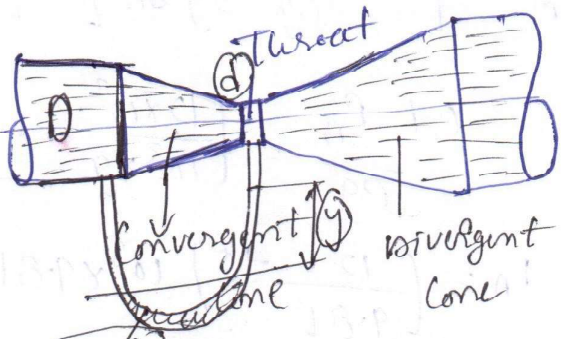 Throat
d
D
Convergent
Cone
y
Divergent
Cone